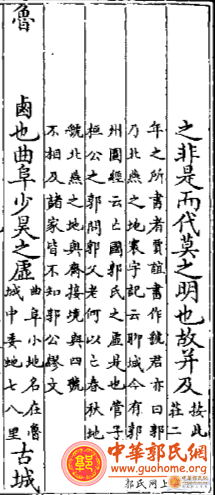 之非是而代莫之明也故并及按此
莊二
年之所書者賈誼書作虢君亦曰郭
乃北燕之地寰宇記云聊城今有郭
州圖經云亡國郭氏之虛是也管子
桓公之郭問郭父老何以亡春秋地
虢北燕之地與齊接境與四虢
不相及諸家皆不知郭公繆文
魯
鹵也曲阜少昊之虛曲阜小地名在魯
城中委曲七八里古城
中華郭氏網
郭氏网上